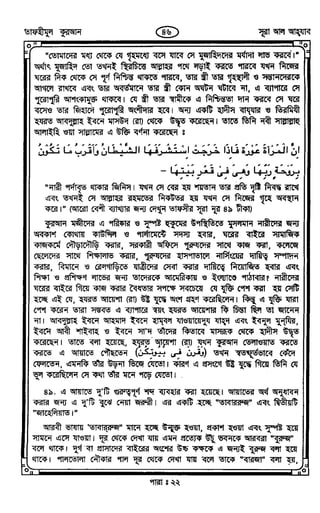 তাফহীমুল কুরআন
৪৬
সূরা আল আহযাব
"তোমাদের মধ্য থেকে যে গৃহমধ্যে বসে যাবে সে মুজাহিদদের মর্যাদা লাভ করবে।"
অর্থাৎ মুজাহিদ তো তখনই স্থিরচিত্তে আল্লাহর পথে লড়াই করতে পারবে যখন নিজের
ঘরের দিক থেকে সে পূর্ণ নিশ্চিন্ত থাকতে পারবে, তার স্ত্রী তার গৃহস্থালী ও সন্তানদেরকে
আগলে রাখবে এবং তার অবর্তমানে তার স্ত্রী কোন অঘটন ঘটাবে না, এ ব্যাপারে সে
পুরোপুরি আশংকামুক্ত থাকবে। যে স্ত্রী তার স্বামীকে এ নিশ্চিন্ততা দান করবে সে ঘরে
বসেও তার জিহাদে পুরোপুরি অংশীদার হবে। অন্য একটি হাদীস বাযযার ও তিরমিযী
হযরত আবদুল্লাহ ইবনে মাসউদ (রা) থেকে উদ্ধৃত করেছেন। তাতে তিনি নবী সাল্লাল্লাহু
আলাইহি ওয়া সাল্লামের এ উক্তি বর্ণনা করেছেন ঃ
ان الْمَرْأَةَ عَوْرَةٌ فَاذَا خَرَجَتْ اسْتَشْرَفَهَا الشَّيْطَانُ وَأَقْرَبُ مَا تَكُوْنُ
بِرَوْحَةِ رَبِّهَا وَهِيَ فِي قَعْرِ بَيْتِهَا -
"নারী পর্দাবৃত থাকার জিনিস। যখন সে বের হয় শয়তান তার প্রতি দৃষ্টি নিবদ্ধ রাখে
এবং তখনই সে আল্লাহর রহমতের নিকটতর হয় যখন সে নিজের গৃহে অবস্থান
করে।" (আরো বেশী ব্যাখ্যার জন্য দেখুন তাফসীর সূরা নূর ৪৯ টীকা)
কুরআন মজীদের এ পরিষ্কার ও সুস্পষ্ট হুকুমের উপস্থিতিতে মুসলমান নারীদের জন্য
অবকাশ কোথায় কাউন্সিল ও পার্লামেন্টে সদস্য হবার, ঘরের বাইরে সামাজিক
কাজকর্মে দৌড়াদৌড়ি করার, সরকারী অফিসে পুরুষদের সাথে কাজ করা, কলেজে
ছেলেদের সাথে শিক্ষালাভ করার, পুরুষদের হাসপাতালে নার্সিংয়ের দায়িত্ব সম্পাদন
করার, বিমানে ও রেলগাড়িতে যাত্রীদের সেবা করার দায়িত্বে নিয়োজিত হবার এবং
শিক্ষা ও প্রশিক্ষণ লাভের জন্য তাদেরকে আমেরিকায় ও ইংল্যান্ডে পাঠাবার। নারীদের
ঘরের বাইরে গিয়ে কাজ করার বৈধতার সপক্ষে সবচেয়ে যে যুক্তি পেশ করা হয় সেটি
হচ্ছে এই যে, হযরত আয়েশা (রা) উষ্ট্র যুদ্ধে অংশ গ্রহণ করেছিলেন। কিন্তু এ যুক্তি যারা
পেশ করেন তারা সম্ভবত এ ব্যাপারে স্বয়ং হযরত আয়েশার কি চিন্তা ছিল তা জানেন
না। আবদুল্লাহ ইবনে আহমাদ ইবনে হাম্বল যাওয়ায়েদুয যুহদ এবং ইবনুল মুনযির,
ইবনে আবী শাইবাহ ও ইবনে সা'দ তাঁদের কিতাবে মাসরুক থেকে হাদীস উদ্ধৃত
করেছেন। তাতে বলা হয়েছে, হযরত আয়েশা (রা) যখন কুরআন তেলাওয়াত করতে
করতে এ আয়াতে পৌঁছতেন (وقرن فى بيوتكن) তখন স্বতস্ফূর্তভাবে কেঁদে
ফেলতেন, এমনকি তাঁর উড়না ভিজে যেতো। কারণ এ প্রসংগে উষ্ট্র যুদ্ধে গিয়ে তিনি যে
ভুল করেছিলেন সে কথা তাঁর মনে পড়ে যেতো।
৪৯. এ আয়াতে দু'টি গুরুত্বপূর্ণ শব্দ ব্যবহার করা হয়েছে। আয়াতের অর্থ অনুধাবন
করার জন্য এ দু'টি বুঝে নেয়া জরুরী। এর একটি হচ্ছে "তাবাররুজ" এবং দ্বিতীয়টি
"জাহেলিয়াত।"
আরবী ভাষায় "তাবাররুজ" মানে হচ্ছে উন্মুক্ত হওয়া, প্রকাশ হওয়া এবং সুস্পষ্ট হয়ে
সামনে এসে যাওয়া। দূর থেকে দেখা যায় এমন প্রত্যেক উঁচু ভবনকে আরবরা "বুরুজ"
বলে থাকে। দুর্গ বা প্রাসাদের বাইরের অংশের উচ্চ কক্ষকে এ জন্যই বুরুজ বলা হয়ে
থাকে। পালতোলা নৌকার পাল দূর থেকে দেখা যায় বলে তাকে "বারজা" বলা হয়,
পারা ঃ ২২